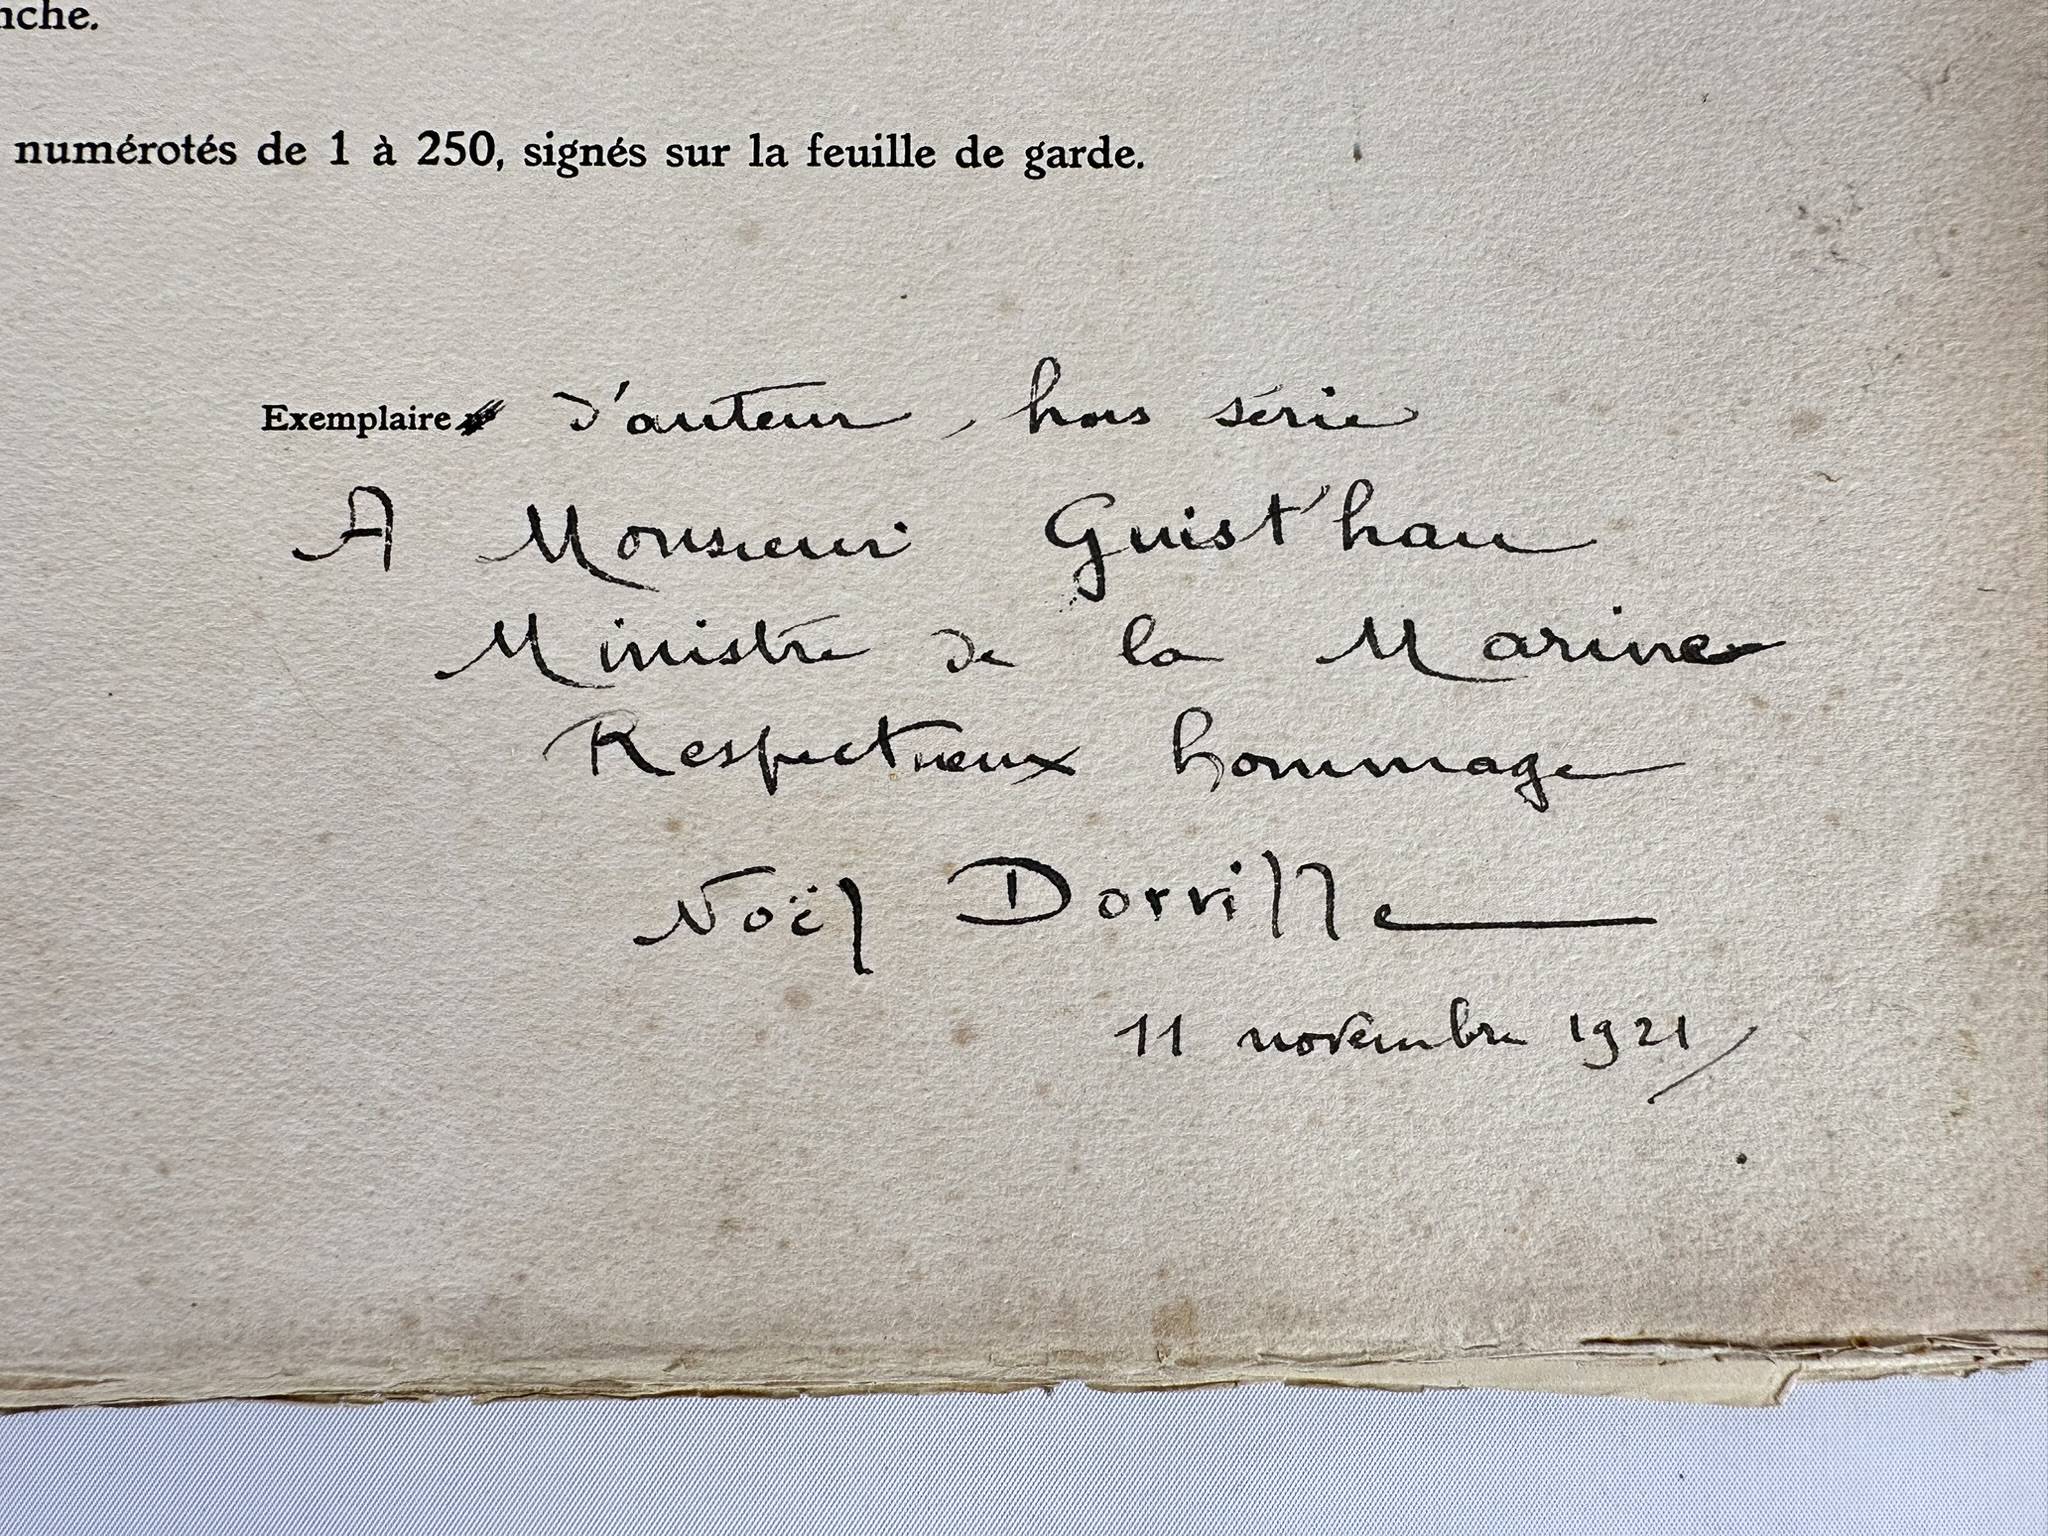 nche.
numérotés de 1 à 250, signés sur la feuille de garde.
Exemplaire n° d'auteur, hors série
A Monsieur Guist'hau
Ministre de la Marine
Respectueux hommage
Noël Dorville
11 novembre 1921